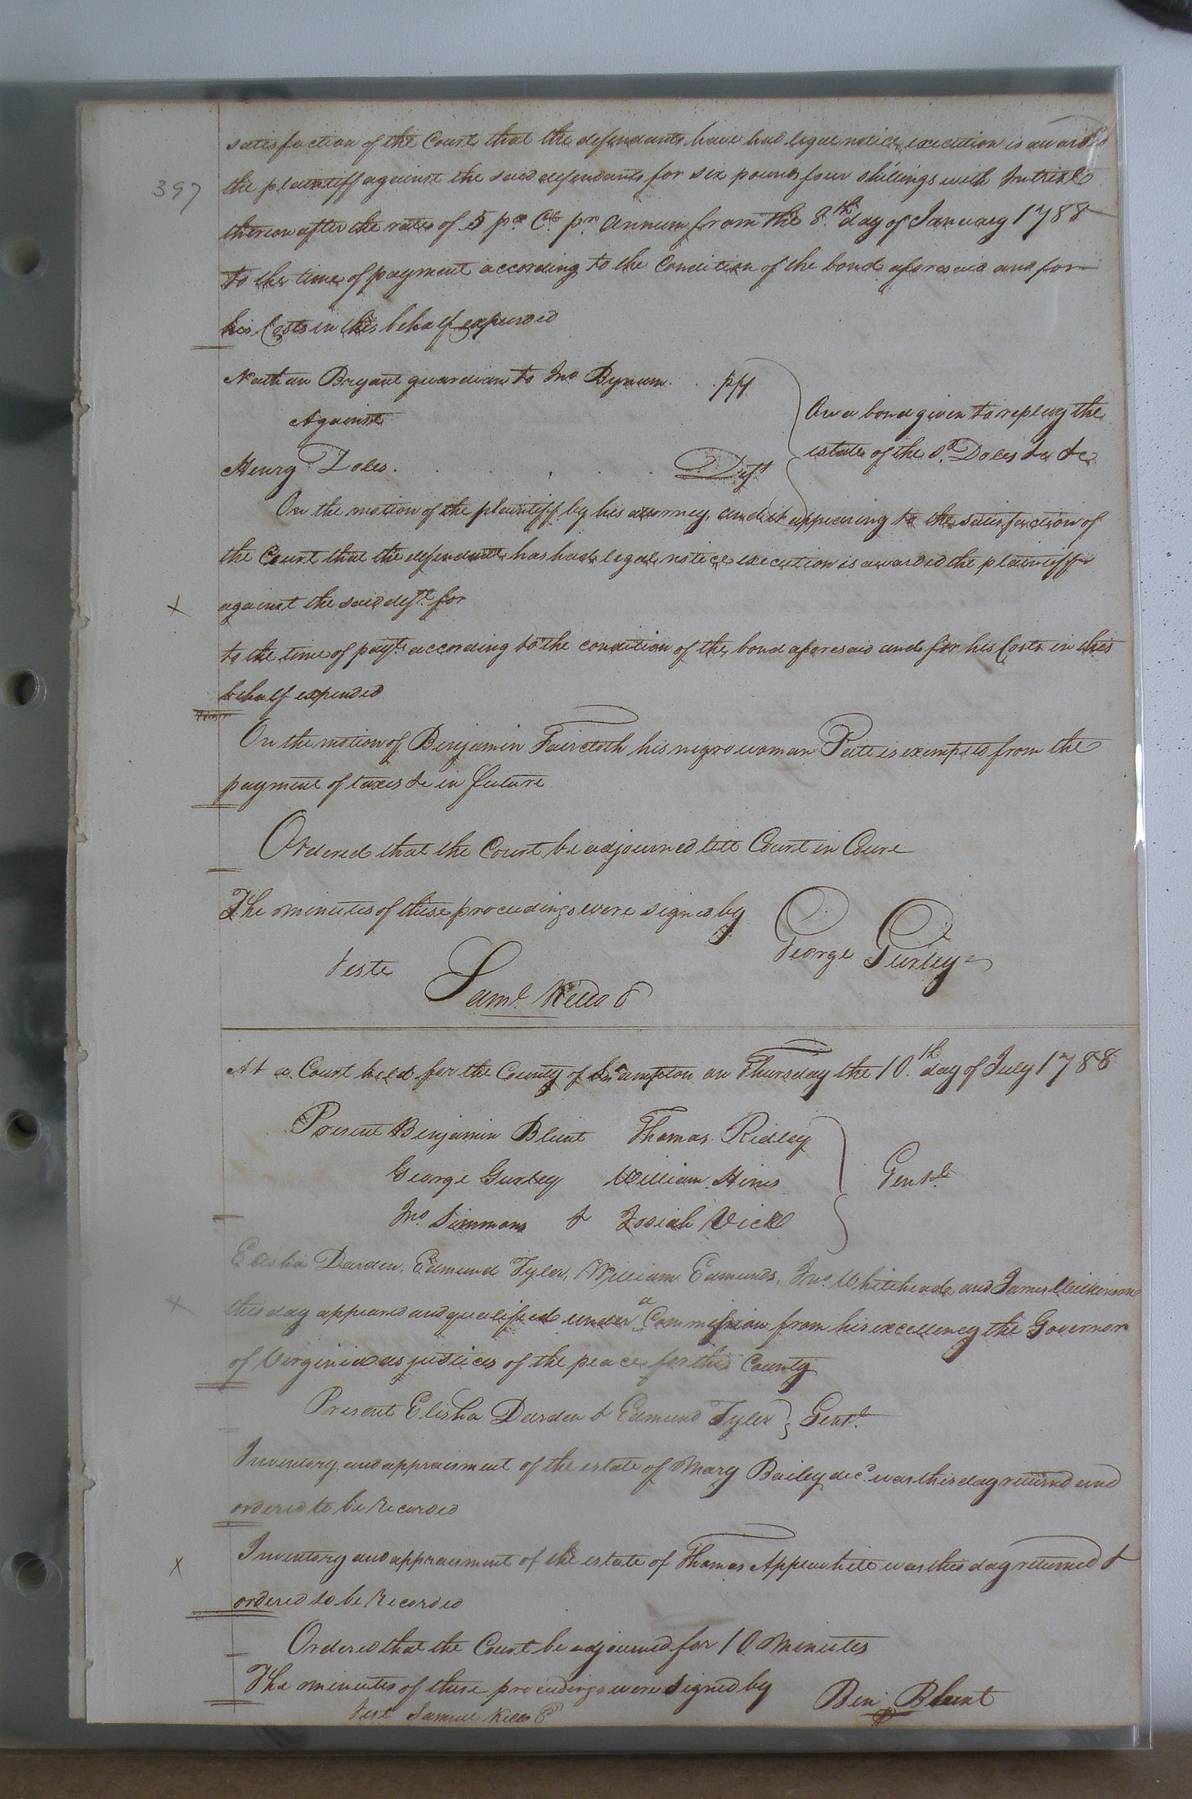 satisfaction of the Court that the defendants have had legal notice, execution is awarded
397
the plaintiff against the said defendants for six pounds four shillings with Intrest
thereon after the rate of 5 pr Ct pr Annum from the 8.th day of January 1788
to the time of payment according to the Condition of the bond aforesaid and for
his Costs in this behalf expended
Nathan Bryant guardian to Jno Bynum . . plf
Against
On a bond given to replevy the
estate of the sd Doles &c &c
Henry Doles. . . . . . Deft
On the motion of the plaintiff by his attorney, and it appearing to the satisfaction of
the Court that the defendant has had legal notice execution is awarded the plaintiff
x against the said deft for
to the time of payt according to the condition of the bond aforesaid and for his Costs in this
behalf expended
On the motion of Benjamin Faircloth his negro woman Patt is exempted from the
payment of taxes &c in future
Ordered that the Court be adjourned till Court in Course
The minutes of these proceedings were signed by George Gurley
Teste Saml Kello C
At a Court held for the County of So.ampton on Thursday the 10.th day of July 1788
Present Benjamin Blunt Thomas Ridley
George Gurley William Hines Gentl
Jno Simmons & Josiah Vick
Elisha Darden, Edmund Tyler, William Edmunds, Jno Whitehead, and James Wilkinson
x this day appeared and qualified under a Commission from his excellency the Governor
of Virginia as justices of the peace for this County
Present Elisha Darden & Edmund Tyler } Gentl
Inventory and appraisment of the estate of Mary Bailey decd was this day returned and
ordered to be Recorded
x Inventory and appraisment of the estate of Thomas Applewhite was this day returned &
ordered to be Recorded
Ordered that the Court be adjourned for 10 Minutes
The minutes of these proceedings were signed by Ben: Blunt
Test Samuel Kello C